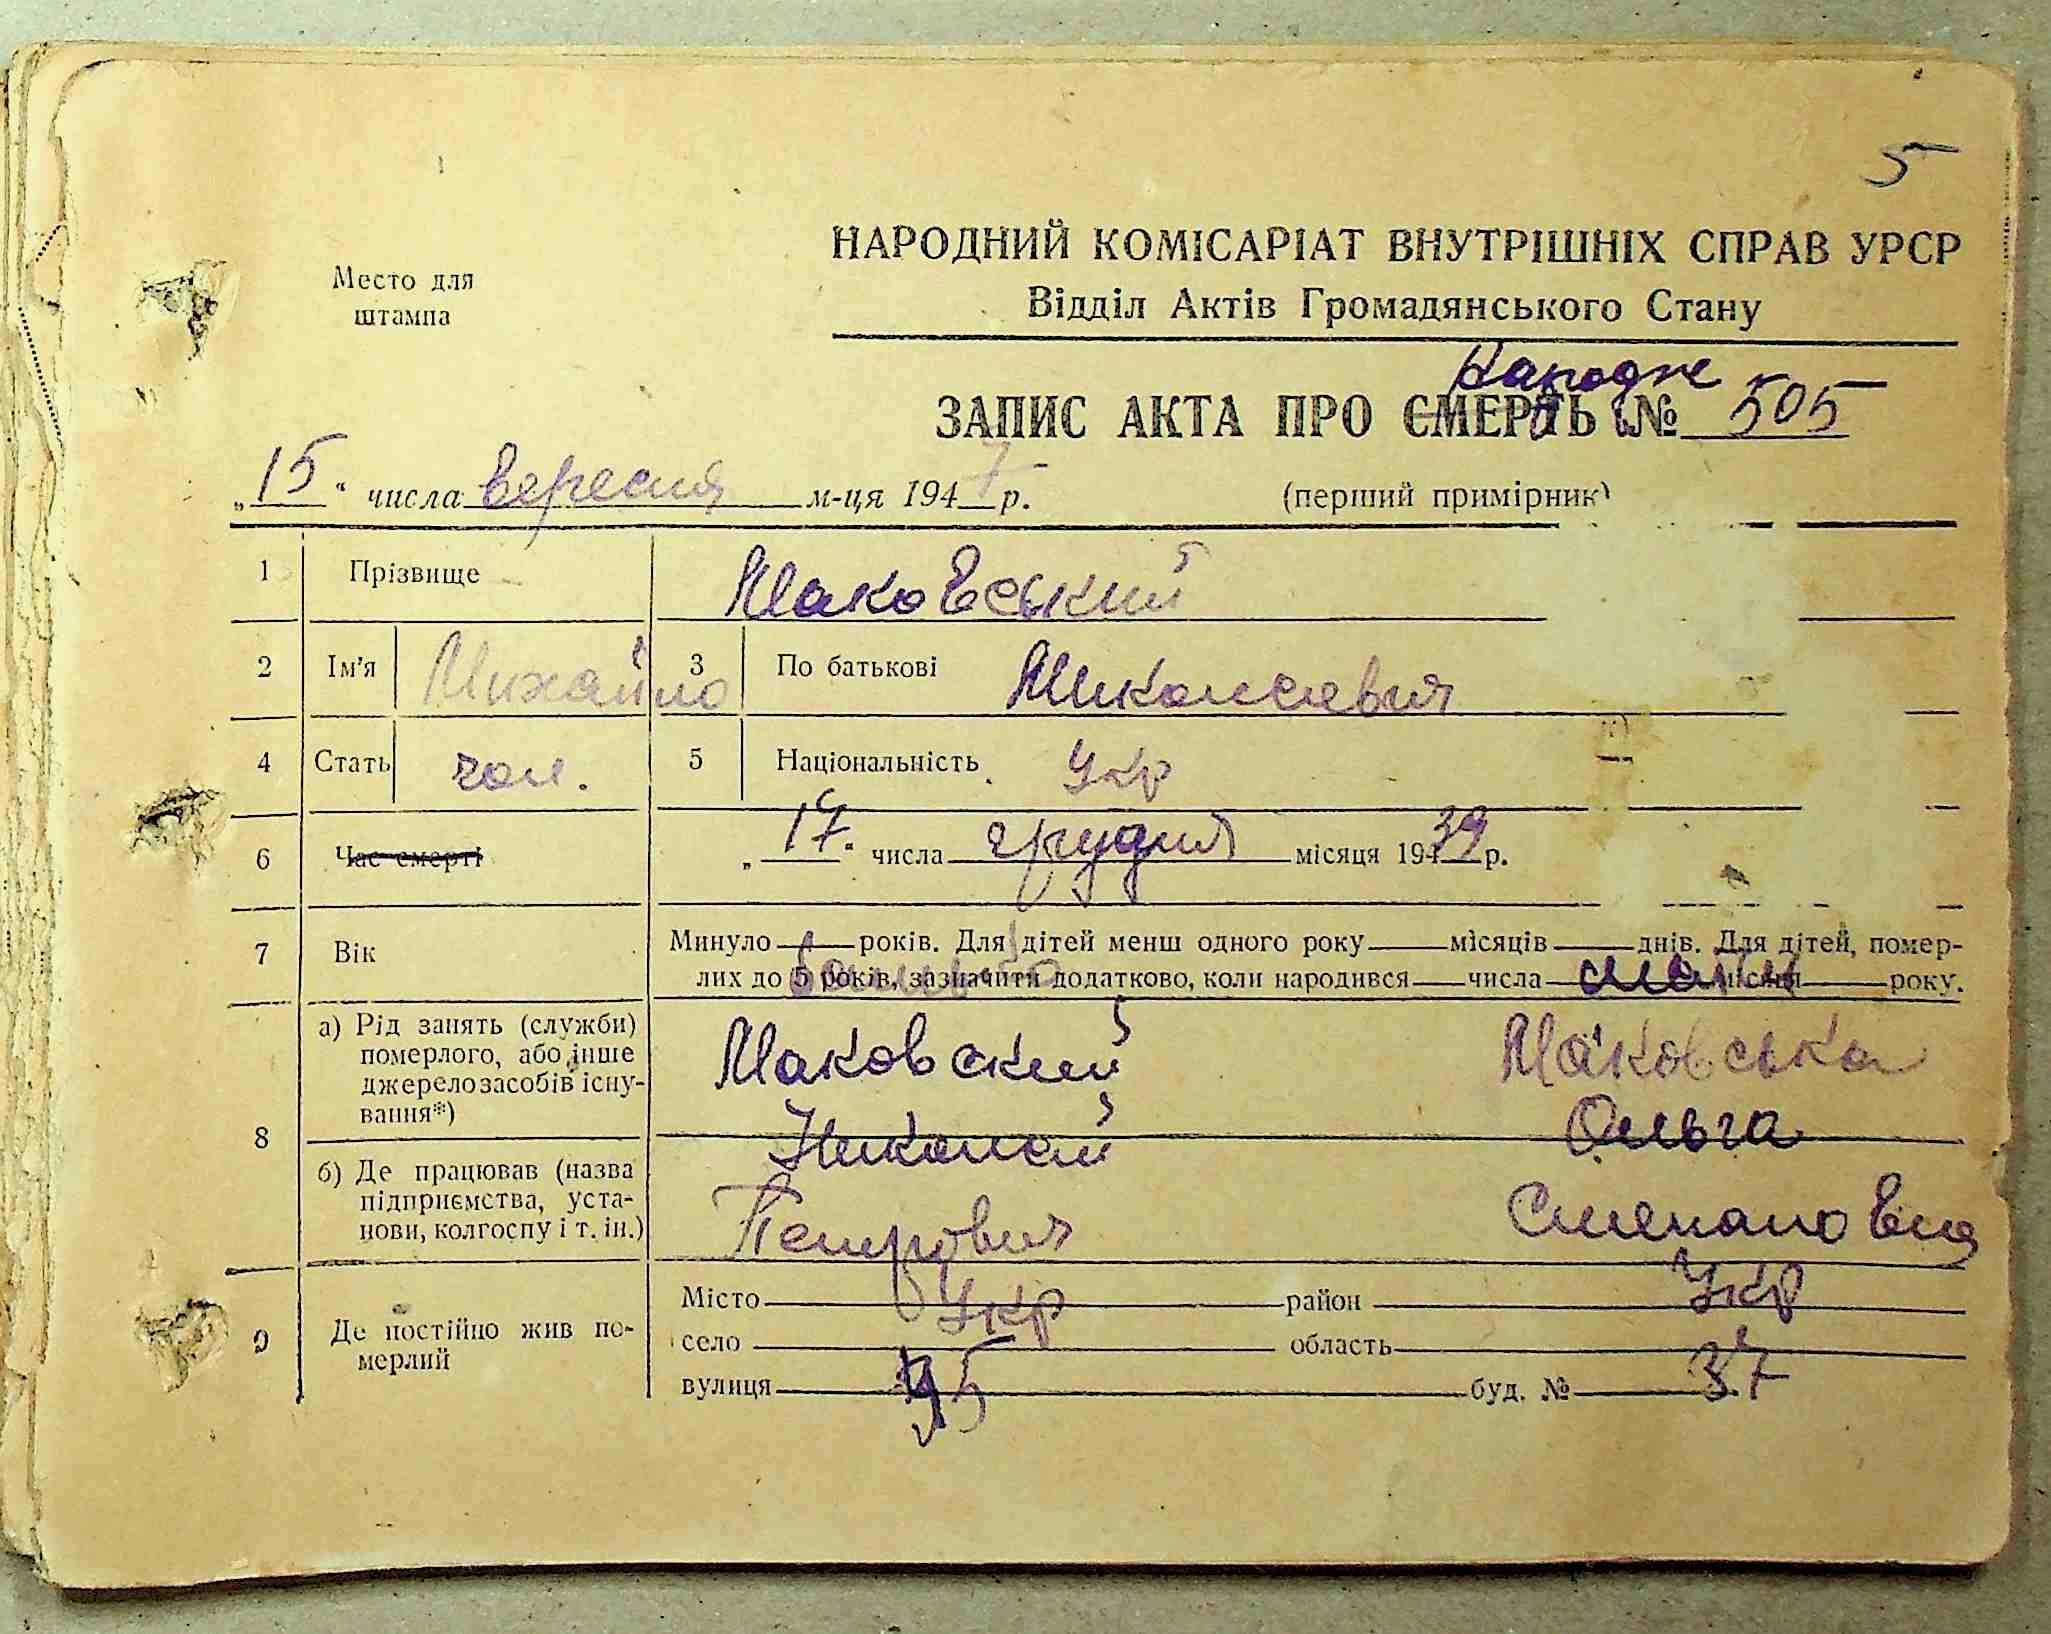 5
Место для
штампа
НАРОДНИЙ КОМІСАРІАТ ВНУТРІШНІХ СПРАВ УРСР
Відділ Актів Громадянського Стану
Народже
ЗАПИС АКТА ПРО СМЕРТЬ № 505
„15" числа вересня м-ця 1947 р. (перший примірник)
1 Прізвище Маковський
2 Ім'я Михайло 3 По батькові Миколаєвич
4 Стать чол. 5 Національність Укр
6 Час смерті „17" числа грудня місяця 19439 р.
7 Вік Минуло — років. Для дітей менш одного року — місяців — днів. Для дітей, помер-
лих до 5 років, зазначити додатково, коли народився — числа — місяця — року.
батько мати
8 а) Рід занять (служби)
померлого, або інше
джерело засобів існу-
вання*)
Маковский Маковська
Николай Ольга
б) Де працював (назва
підприємства, уста-
нови, колгоспу і т. ін.)
Петрович Степановна
9 Де постійно жив по-
мерлий
Місто Укр район Укр
село область
вулиця 45 буд. № 37